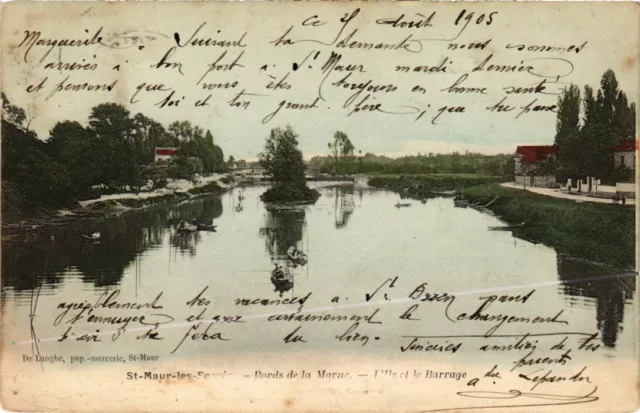 Ce 25 Août 1905
Marguerite Suivant ta demante nous sommes
arrivés à bon port à St Maur mardi dernier
et pensons que vous êtes toujours en bonne santé
toi et ton grant père, que tu passe
agréablement tes vacances à St sans
t'ennuyer et avec certainement le changement
d'air te fera du bien. Sincères amitiés de tes
parents
De Langhe, pap.-mercerie, St-Maur
St-Maur-les-Fossés — Bords de la Marne. — L'Ile et le Barrage